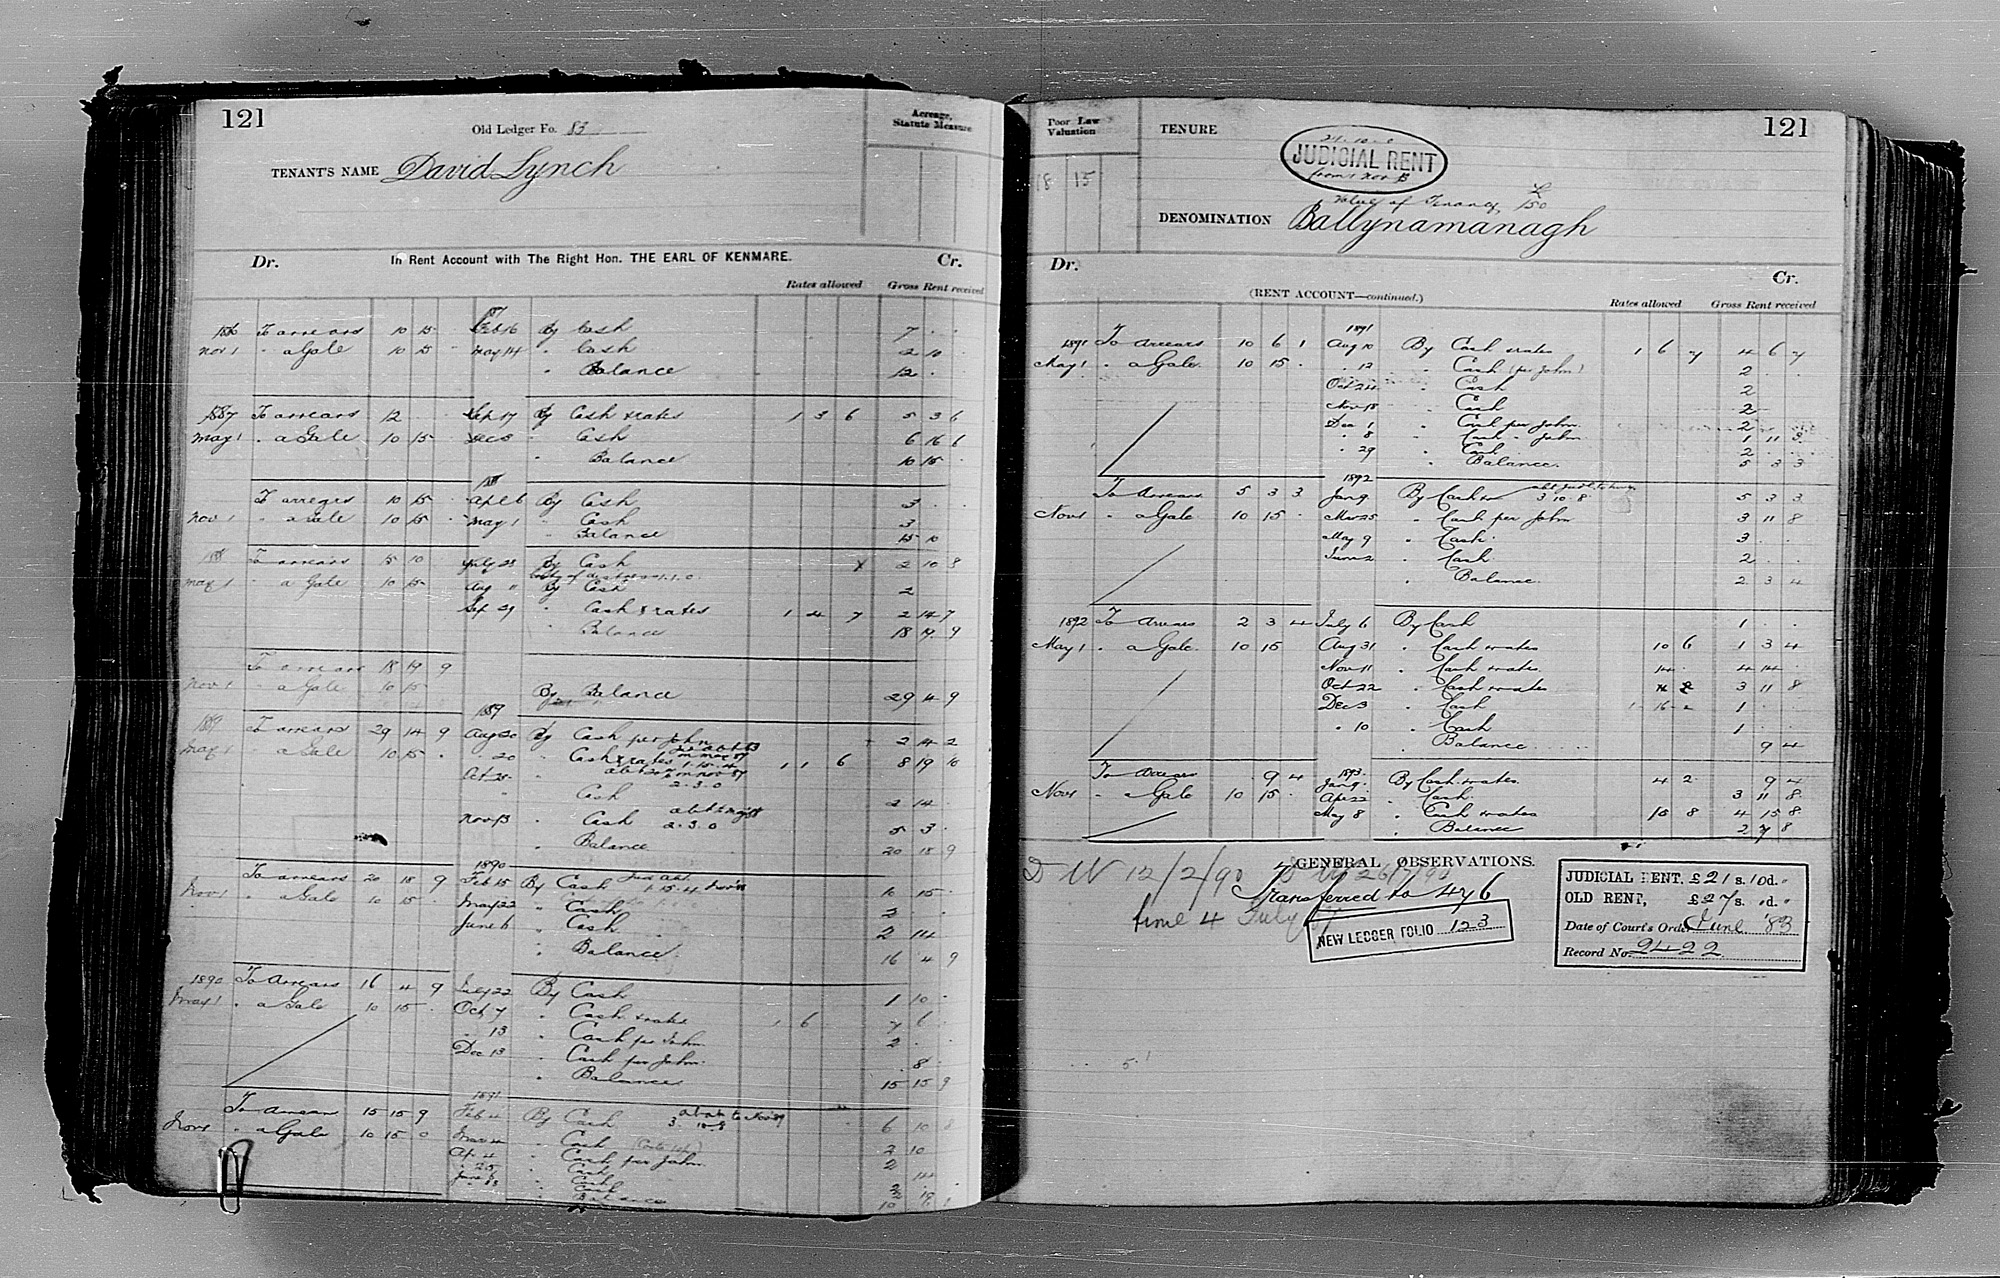 121
Old Ledger Fo. 83
Acreage, Statute Measure
TENANT'S NAME David Lynch
Dr. In Rent Account with The Right Hon. THE EARL OF KENMARE. Cr.
Rates allowed Gross Rent received
1886 To arrears 10 15 Feb 16 By Cash 7 . .
Nov 1 " a Gale 10 15 May 14 " Cash 2 10 .
" Balance 12 .
1887 To arrears 12 Sep 17 By Cash & rates 1 3 6 5 3 6
May 1 " a Gale 10 15 Dec 8 " Cash 6 16 6
" Balance 10 15 .
To arrears 10 15 Apl 6 By Cash 3 .
Nov 1 " a Gale 10 15 May 1 " Cash 3
" Balance 15 10
1888 To arrears 15 10 July 28 By Cash 2 10 8
May 1 " a Gale 10 15 Aug 11 By Cash 2
Sep 29 " Cash & rates 1 4 7 2 14 7
" Balance 18 19 9
To arrears 18 19 9
Nov 1 " a Gale 10 15 By Balance 29 4 9
1889
1889 To arrears 29 14 9 Aug 20 By Cash per John 2 14 2
May 1 " a Gale 10 15 . " 20 " Cash & rates 1 1 6 8 19 10
Oct 28 2.3.0
" Cash 2 14
Nov 13 " Cash 2.3.0 5 3 .
" Balance 20 18 9
1890
To arrears 20 18 9 Feb 15 By Cash 1.15.4 10 15 .
Nov 1 " a Gale 10 15 . May 22 " Cash 3
June 6 " Cash 2 14
" Balance 16 4 9
1890 To Arrears 16 4 9 July 22 By Cash 1 10 .
May 1 " a Gale 10 15 . Oct 7 " Cash & rates 1 6 7 6
" 13 " Cash per John 2 .
Dec 13 " Cash per John . 8
" Balance 15 15 9
1891
To Arrears 15 15 9 Feb 4 By Cash 6 10 8
Nov 1 " a Gale 10 15 0 Mar 4 " Cash 2 10
Ap. 4 " Cash per John 2
" 25 " Cash
June 8 " Cash
" Balance
Poor Law Valuation
18 15
TENURE
121
JUDICIAL RENT
from 1 Nov 83
Value of Tenancy £150
DENOMINATION Ballynamanagh
Dr. Cr.
(RENT ACCOUNT—continued.) Rates allowed Gross Rent received
1891
1891 To Arrears 10 6 1 Aug 10 By Cash & rates 1 6 7 4 6 7
May 1 " a Gale 10 15 . " 12 " Cash (per John) 2 . .
Oct 24 " Cash 2
Nov 18 " Cash 2
Dec 1 " Cash per John 2
" 8 " Cash " John 1 11 8
" 29 " Cash 2
" Balance 5 3 3
1892
To Arrears 5 3 3 Jan 9 By Cash 3.10.8 5 3 3
Nov 1 " a Gale 10 15 . Mar 25 " Cash per John 3 11 8
May 9 " Cash 3 . .
June 2 " Cash 2 . .
" Balance 2 3 4
1892 To Arrears 2 3 4 July 6 By Cash 1 . .
May 1 " a Gale 10 15 Aug 31 " Cash & rates 10 6 1 3 4
Nov 11 " Cash & rates 14 . 4 14 .
Oct 22 " Cash & rates 3 11 8
Dec 3 " Cash 1 16 2 1 .
" 10 " Cash 1 .
" Balance 9 4
To Arrears . 9 4 1893 Jan 9 By Cash & rates 4 2 9 4
Nov 1 " a Gale 10 15 . Apl 22 " Cash 3 11 8
May 8 " Cash & rates 15 8 4 15 8
" Balance 2 7 8
GENERAL OBSERVATIONS.
D W 12/2/90
Transferred to 476
time 4 July
NEW LEDGER FOLIO 123
JUDICIAL RENT, £21 s. 10 d.
OLD RENT, £27 s. d.
Date of Court's Order June '83
Record No. 2422